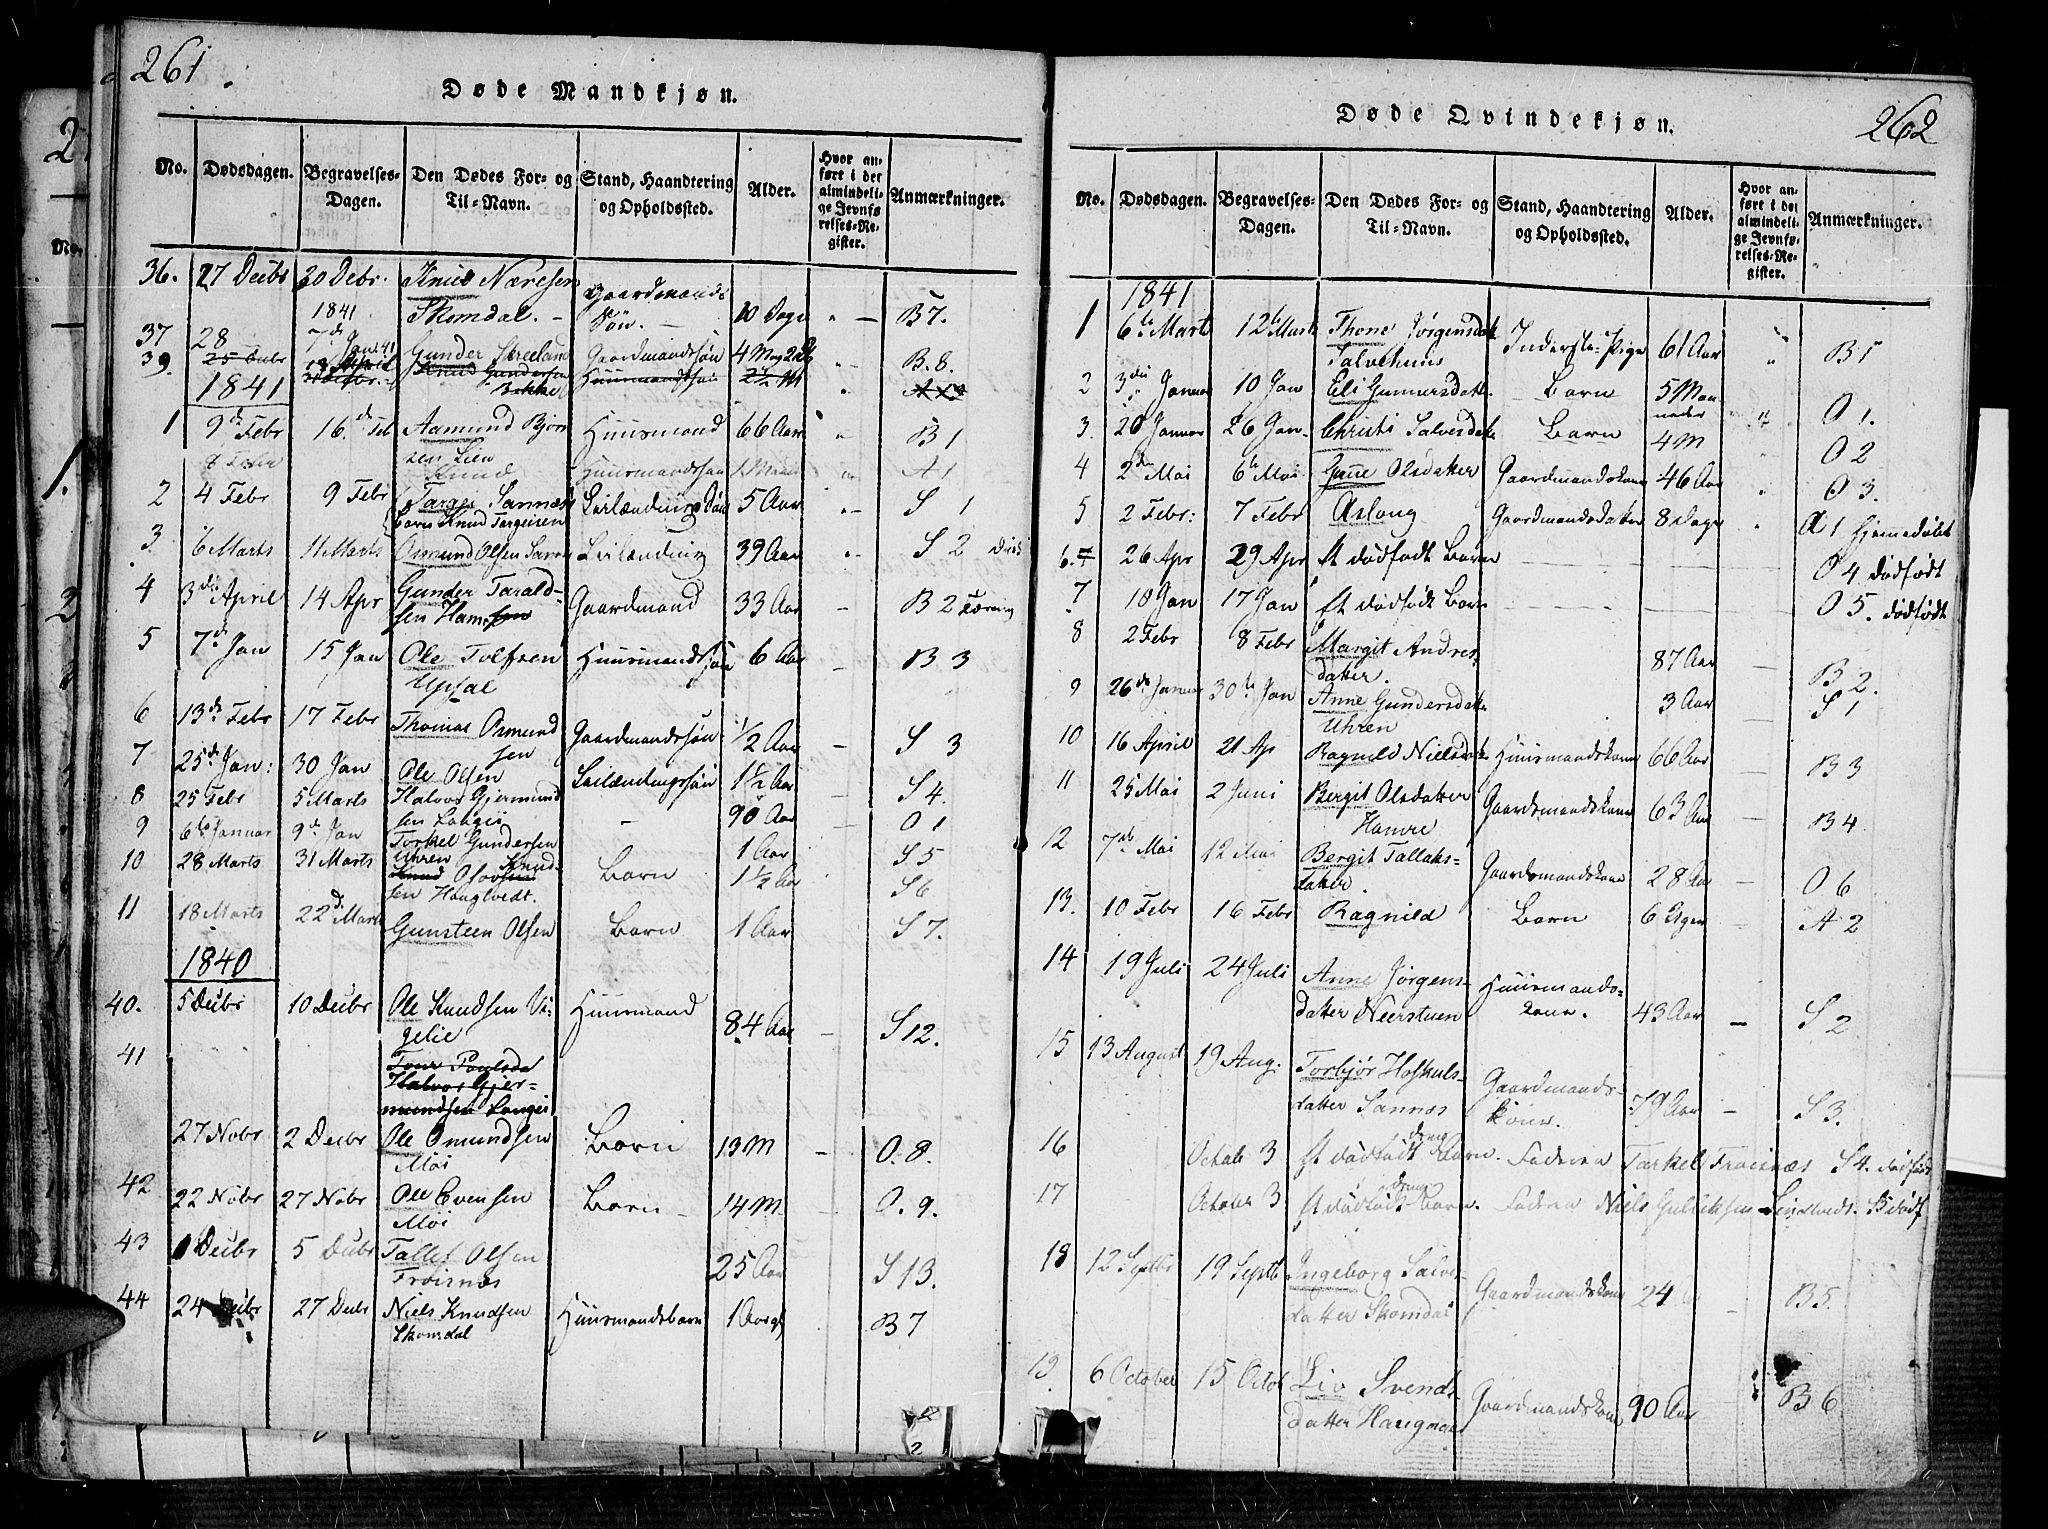 261
Døde Mandkjøn.
No. Dødsdagen. Begravelses-Dagen. Den Dødes For- og Til-Navn. Stand, Haandtering og Opholdssted. Alder. Hvor anført i det almindelige Jevnførelses-Register. Anmærkninger.
36. 27 Decbr 30 Debr. Knud Næresen Gaardmands
1841 Skomdal. – Søn. – 10 Dage – B 7.
37 28 – 7de Jan 41 Gunder Skreeland Gaardmandssøn B. 8.
39. 25 Octbr Knud Gundersen Huusmandssøn 2½ M
1841 Bekke
1 9de Febr 16de Feb Aamund Bjørn Huusmand 66 Aar B 1
sen Lien
Knud Huusmandssøn 1 Maan A 1
2 4 Febr 9 Febr Targei Sannæs Leilændings Søn 5 Aar S 1
Barn Knud Targeisen
3. 6 Marts 11 Marts Osmund Olsen Leilænding 39 Aar S 2
4 3die April 14 Apr Gunder Tarald- Gaardmand 33 Aar – B 2
sen Ham
5 7de Jan 15 Jan Ole Tolfsen Huusmandssøn 6 Aar – B 3
Upsal
6 13de Febr 17 Febr Thomas Osmund Gaardmandssøn ½ Aar – S 3
sen
7 25de Jan: 30 Jan Ole Olsen Leilændingssøn 1½ Aar – S 4.
8 25 Febr 5 Marts Halvor Gjermund – 90 Aar – O 1
sen Langei
9 6te Januar 9de Jan Torkel Gundersen 1 Aar S 5
Uhren
10 28 Marts 31 Marts Olov Knud- Barn 1½ Aar S 6
sen Haugtvedt.
11 18 Marts 22d Marts Gunsteen Olsen Barn 1 Aar S 7.
1840
40. 5 Decbr 10 Decbr Ole Knudsen Vi- Huusmand 84 Aar – S 12.
gelie
41 Tone Paulsda
Halvor Gjer-
mundsen Langei
27 Nobr 2 Decbr Ole Omundsen Barn 13 M – O. 8.
Moi
42 22 Nobr 27 Nobr Ole Evensen Barn 14 M O. 9.
Moi
43 1 Decbr 5 Decbr Tallef Olsen 25 Aar S 13.
Froisnæs
44 24 Decbr 27 Decbr Niels Knudsen Huusmandsbarn 1 Aar B 7
Skomdal
262
Døde Qvindekjøn.
No. Dødsdagen. Begravelses-Dagen. Den Dødes For- og Til-Navn. Stand, Haandtering og Opholdssted. Alder. Hvor anført i det almindelige Jevnførelses-Register. Anmærkninger.
1841
1 6te Marts 12te Marts Thone Jørgensdat Inderste-Pige 61 Aar " B 1
2 3die Januar 10 Jan Eli Gunnersdatter. Barn 5 Maa- O 1.
neder
3. 20 Januar 26 Jan. Christi Salvesdatter Barn 4 M O 2
4 2den Mai 6te Mai Olsdatter Gaardmandskone 46 Aar O 3.
5 2 Febr: 7 Febr Aslong Gaardmandsdatter 8 Dage A 1 hjemmedøbt
6. 26 Apr 29 Apr Et dødfødt Barn – – – O 4 dødfødt
7 10 Jan 17 Jan Et dødfødt Barn O 5. dødfødt
8 2 Febr 8 Febr Margit Andres- 87 Aar – B 2.
datter.
9 26de Januar 30te Jan Anne Gundersdatter 3 Aar S 1
Uhren
10 16 April 21 Ap Ragnild Nielsdatter Huusmandskone 66 Aar – B 3
11 25 Mai 2 Juni Bergit Olsdatter Gaardmandskone 63 Aar – B 4
Hamre
12 7de Mai 12 Mai Bergit Tallaks- Gaardsmandskone 28 Aar – O 6
datter.
13. 10 Febr 16 Febr Ragnild Barn 6 Uger – A 2
14 19 Juli 24 Juli Anne Jørgens- Huusmands- 43 Aar – S 2
datter Neerstuen kone.
15 13 August 19 Aug: Torbjør Hoskuls- Gaardmands- 79 Aar – S 3.
datter Sannæs kone.
16 Octob 3 Et dødfødt dreng Barn. Faderen Tarkel Froisnæs S 4. dødfødt
17 Octobr 3 Et dødfødt dreng Barn. Faderen Niels Gulleksen Lindtvedt.
18 12 Septbr 19 Septb Ingeborg Salve- Gaardmandskone 24 – B 5.
datter Skomdal
19 6 October 15 Octob Liv Svends- Gaardmandskone 90 Aar B 6
datter Haugmae